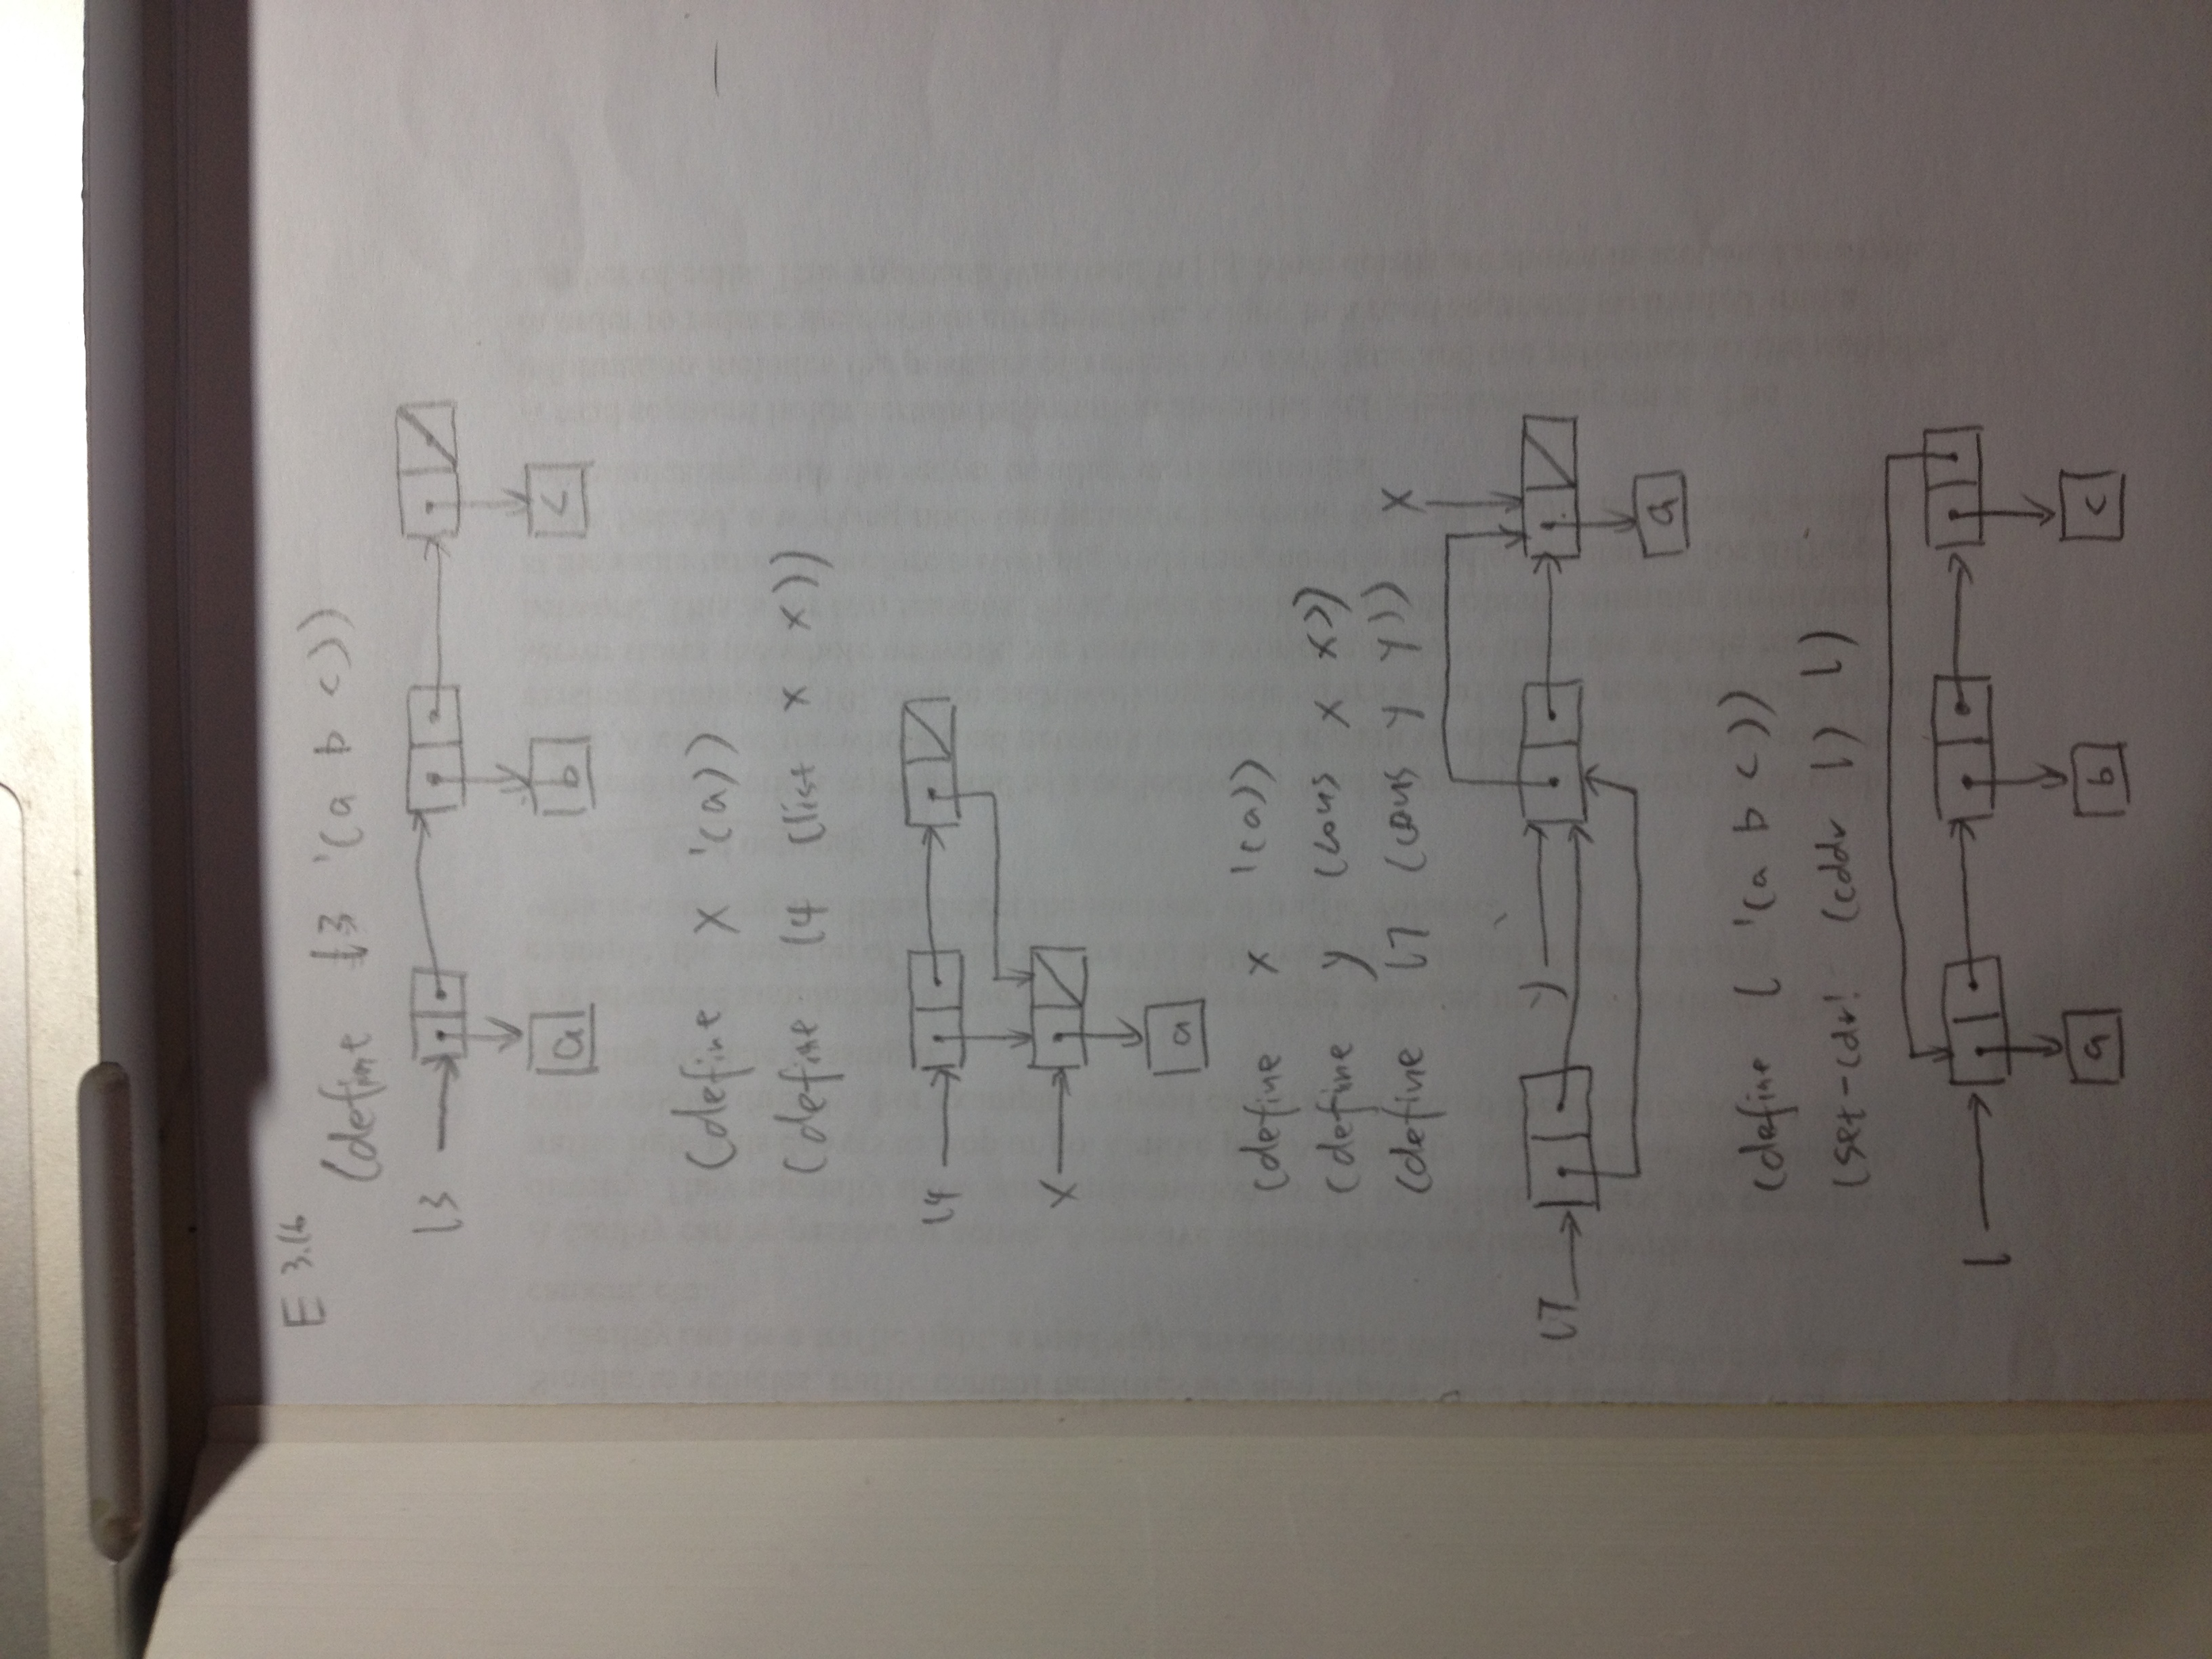 E 3.16
(define l3 '(a b c))
l3
a b c
(define x '(a))
(define l4 (list x x))
l4
x
a
(define x '(a))
(define y (cons x x))
(define l7 (cons y y)) x
l7 y
a
(define l '(a b c))
(set-cdr! (cddr l) l)
l
a b c